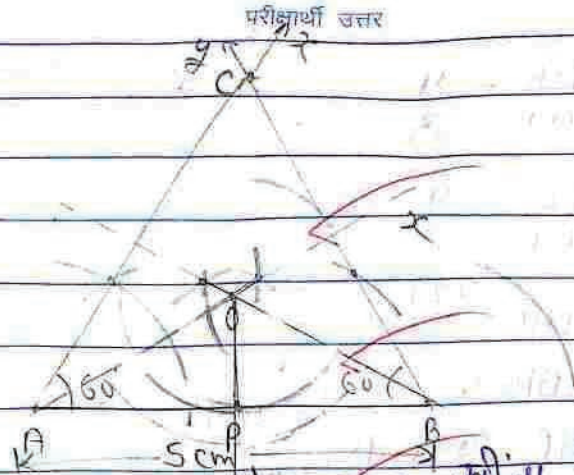 परीक्षार्थी उत्तर
y x
C
x
O
60 60
A 5cm P B